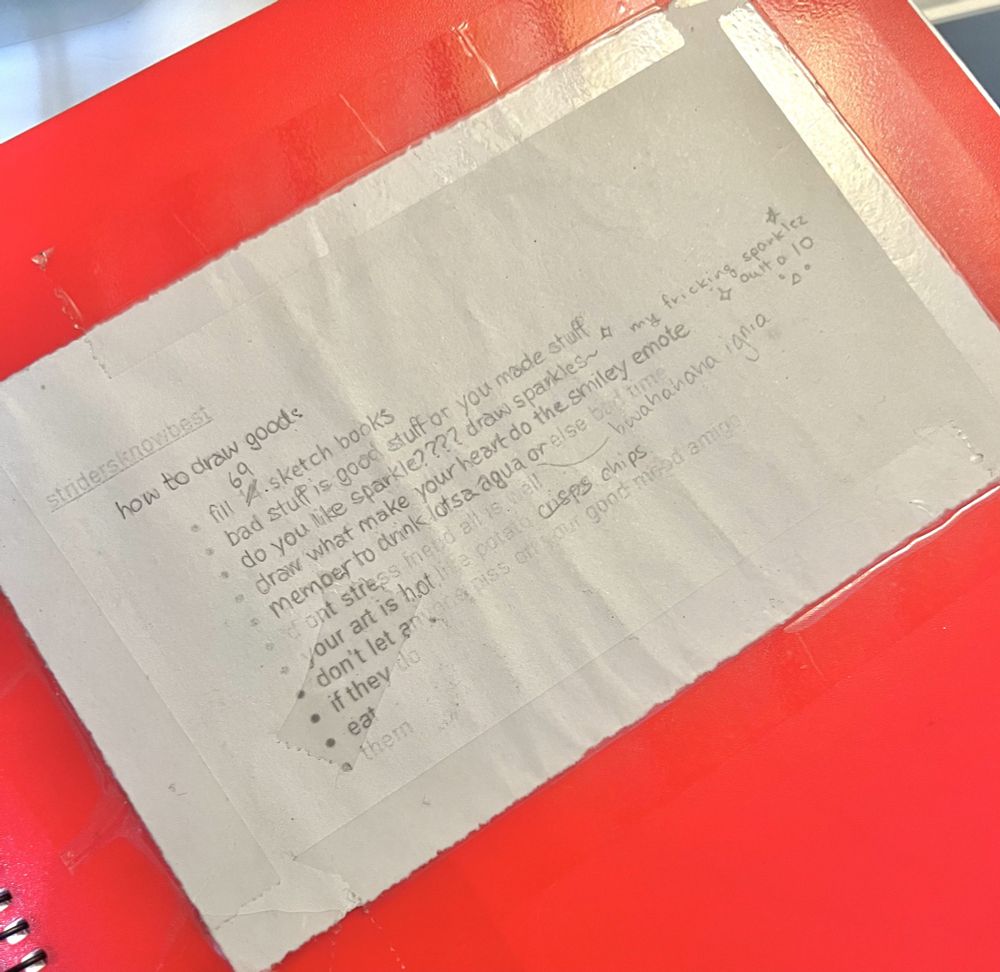 stridersknowbest
how to draw goods
69
• fill .sketch books
• bad stuff is good stuff or you made stuff
• do you like sparkle???? draw sparkles~ my fricking sparklez
outta 10
• draw what make your heart do the smiley emote
• member to drink lotsa agua or else bad time bwahahaha ignia
• dont stress friend all is well
• your art is hot like potato crisps chips
• don't let anyone piss off your good mood amigo
• if they do
• eat
• them